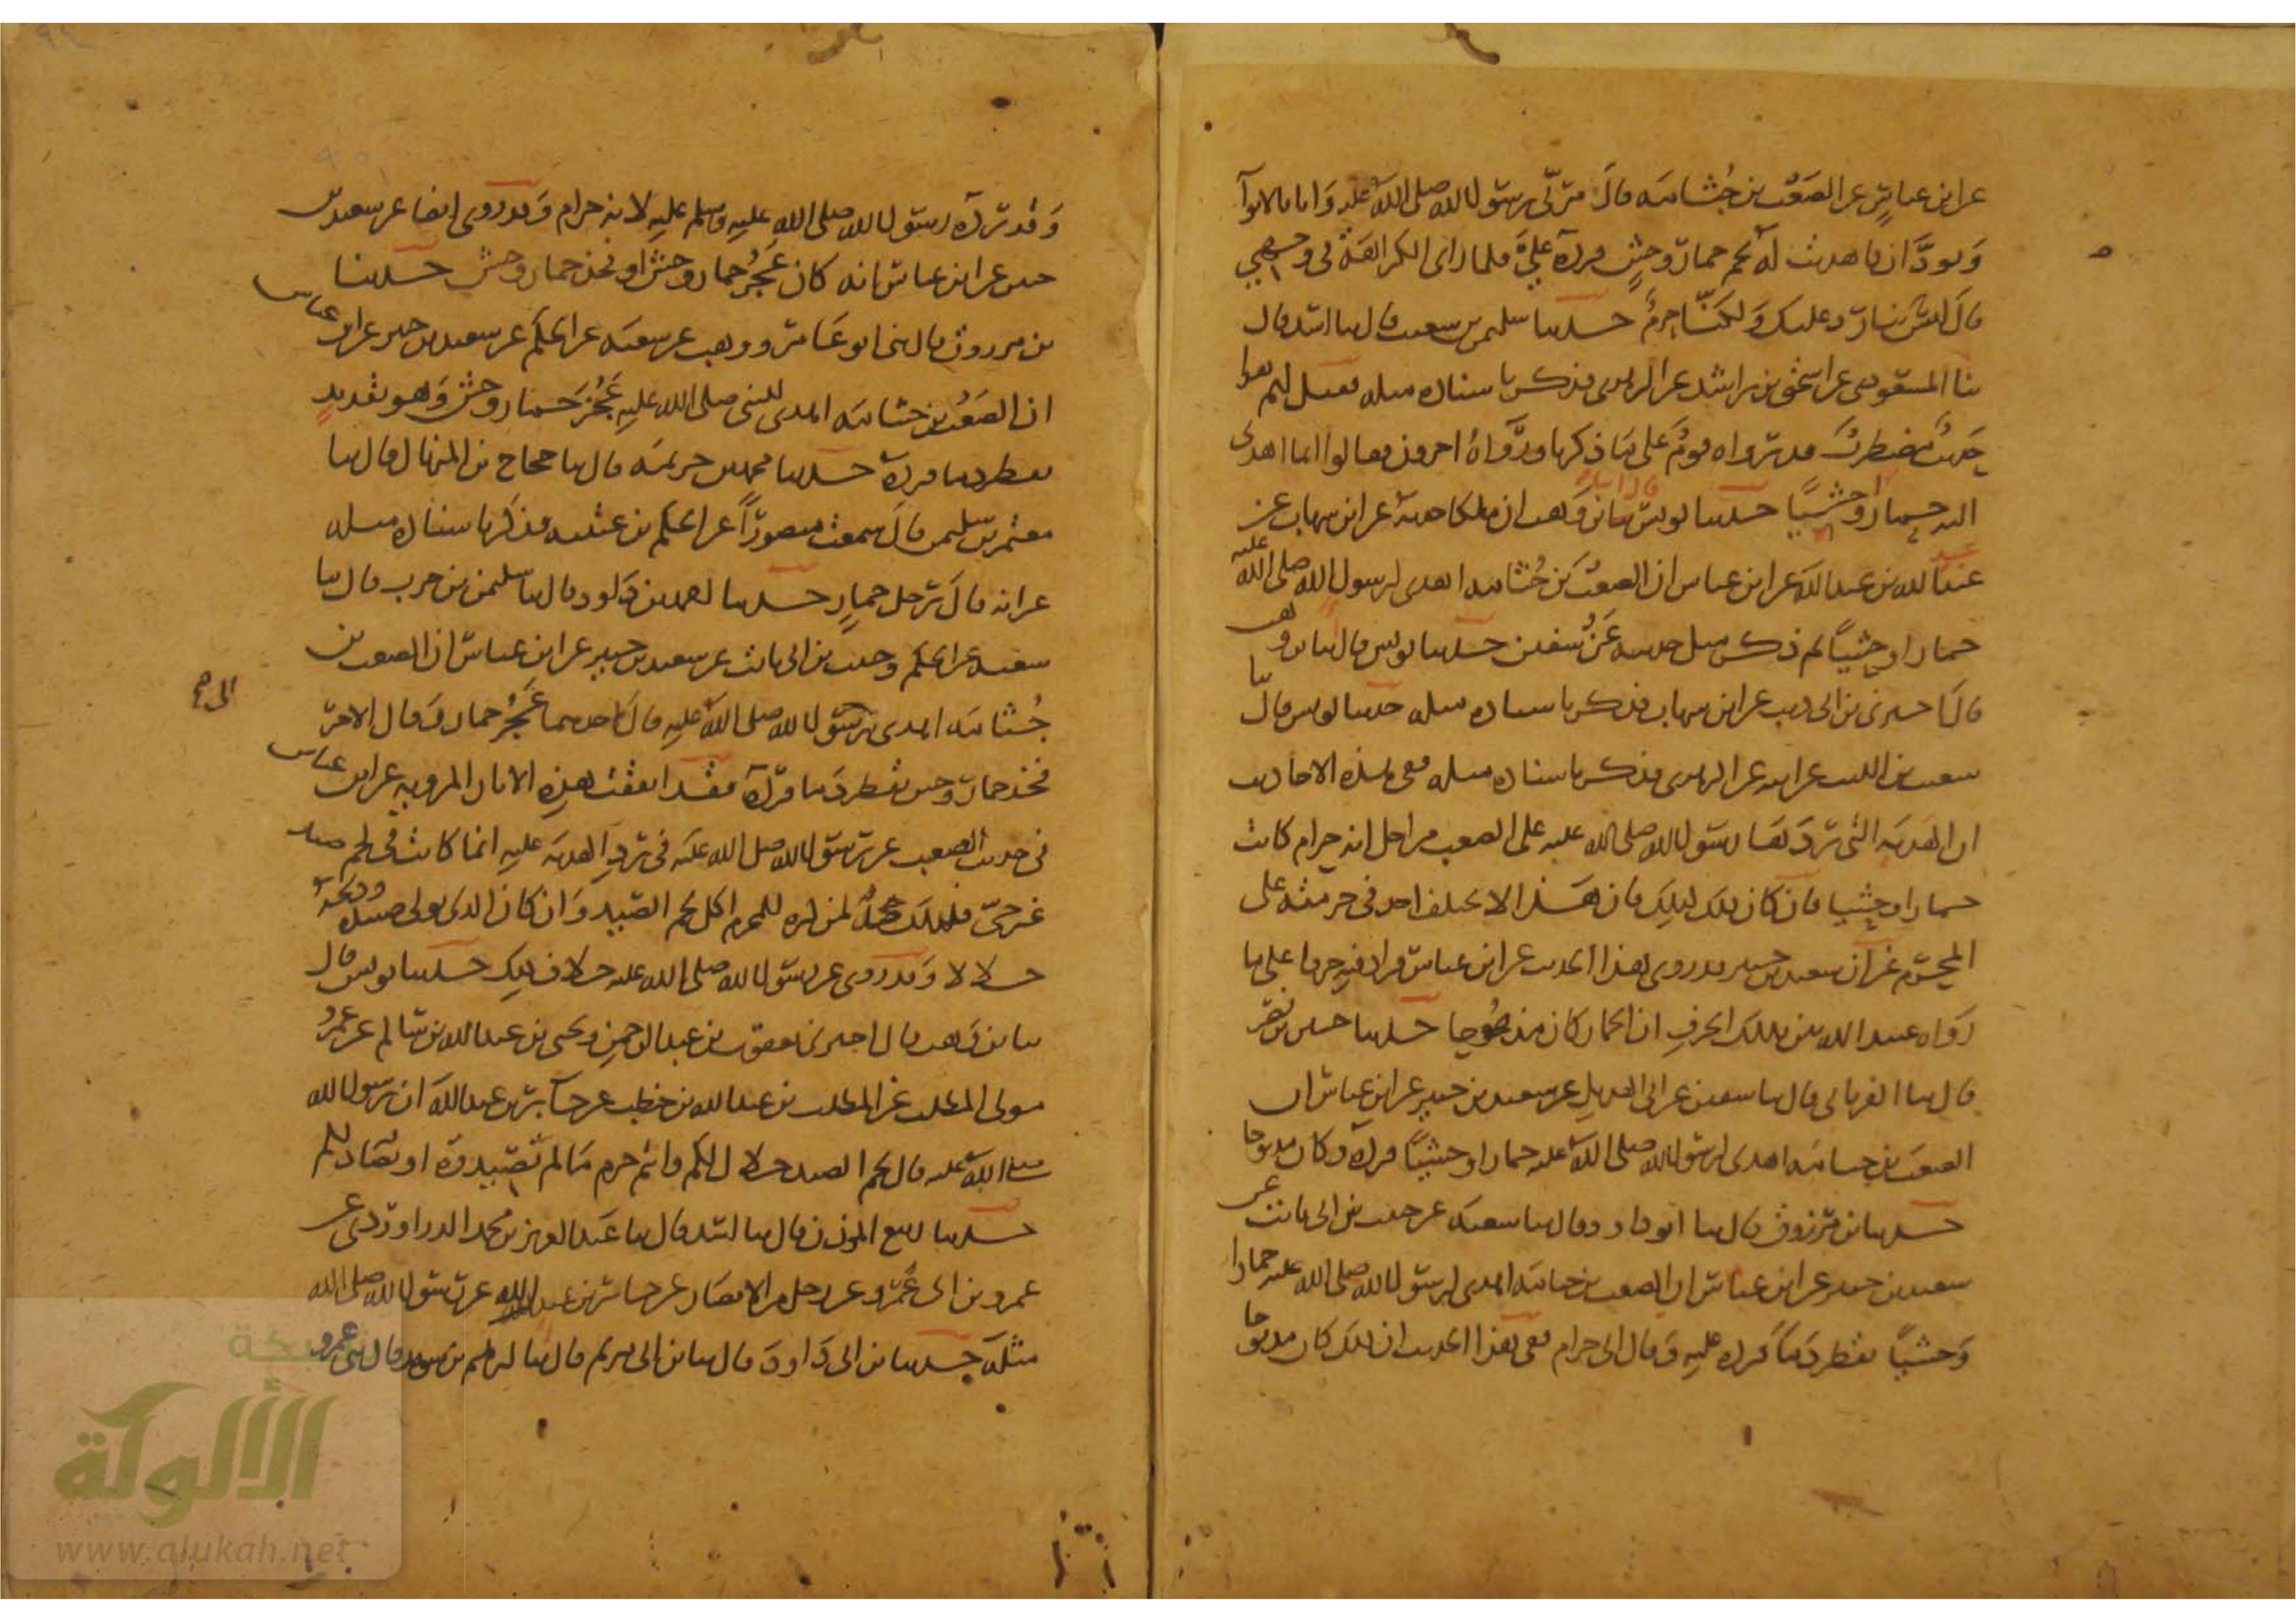 عن ابن عباس عن الصعب بن جثامة قال مر بي رسول الله صلى الله عليه وانا بالابوا
او بودان فاهديت له لحم حمار وحش فرده علي فلما راى الكراهة في وجهي
قال ليس بنا رد عليك ولكنا حرم حدثنا سليمن بن شعيب قال ثنا اسد قال
ثنا المسعودي عن اسحق بن راشد عن الزهري فذكر باسناده مثله فقيل لهم هذا
حديث مضطرب قد رواه قوم على ما ذكرنا ورواه اخرون فقالوا انما اهدى
اليه حمارا وحشيا حدثنا يونس قال انا ابن وهب ان ملكا حدثه عن ابن شهاب عن
عبيد الله بن عبد الله عن ابن عباس ان الصعب بن جثامة اهدى لرسول الله صلى الله عليه
حمارا وحشيا ثم ذكر مثل حديثه عن سفين حدثنا يونس قال ثنا ابن وهب
قال اخبرني ابن ابي ذيب عن ابن شهاب فذكر باسناده مثله حدثنا يونس قال ثنا
شعيب بن الليث عن ابيه عن الزهري فذكر باسناده مثله ففي هذه الاحاديث
ان الهدية التي ردها رسول الله صلى الله عليه على الصعب من اجل انه حرام كانت
حمارا وحشيا فان كان ذلك كذلك فان هذا لا يختلف احد في حرمته على
المحرم غير ان سعيد بن جبير قد روى هذا الحديث عن ابن عباس فزاد فيه حرفا على ما
رواه عبيد الله بين بذلك الحرف ان الحمار كان مذبوحا حدثنا حسين بن نصر
قال ثنا الفريابي قال ثنا سفين عن ابي الهذيل عن سعيد بن جبير عن ابن عباس ان
الصعب بن جثامة اهدى لرسول الله صلى الله عليه حمارا وحشيا فرده وكان مذبوحا
حدثنا ابن مرزوق قال ثنا ابو داود قال ثنا شعبة عن حبيب بن ابي ثابت عن
سعيد بن جبير عن ابن عباس ان الصعب بن جثامة اهدى لرسول الله صلى الله عليه حمارا
وحشيا يقطر دما فرده عليه وقال اني حرام ففي هذا الحديث ان ذلك كان مذبوحا
وقد رده رسول الله صلى الله عليه وسلم عليه لانه حرام وقد روى ايضا عن سعيد بن
جبير عن ابن عباس انه كان عجز حمار وحش او فخذ حمار وحش حدثنا
ابن مرزوق قال ثنا ابو عامر ووهب عن شعبة عن الحكم عن سعيد بن جبير عن ابن عباس
ان الصعب بن جثامة اهدى للنبي صلى الله عليه عجز حمار وحش وهو بقديد
يقطر دما فرده حدثنا محمد بن خزيمة قال ثنا حجاج بن المنهال قال ثنا
معتمر بن سليمن قال سمعت منصورا عن الحكم بن عتيبه فذكر باسناده مثله
غير انه قال رجل حمار حدثنا احمد بن داود قال ثنا سليمن بن حرب قال ثنا
شعبة عن الحكم وحبيب بن ابي ثابت عن سعيد بن جبير عن ابن عباس ان الصعب بن
جثامة اهدى لرسول الله صلى الله عليه قال احدهما عجز حمار وقال الاخر
فخذ حمار وحش يقطر دما فرده فقد اتفقت هذه الاثار المروية عن ابن عباس
في حديث الصعب عن رسول الله صلى الله عليه في رد الهدية عليه انما كانت في لحم صيد
غير حي فذلك حجة لمن كره للمحرم اكل لحم الصيد وان كان الذي تولى صيده وذبحه
حلالا وقد روى عن رسول الله صلى الله عليه خلاف ذلك حدثنا يونس قال
ثنا ابن وهب قال اخبرني يعقوب بن عبد الرحمن ويحيى بن عبد الله بن سالم عن عمرو
مولى المطلب عن المطلب بن عبد الله بن حنطب عن جابر بن عبد الله ان رسول الله
صلى الله عليه قال لحم الصيد حلال لكم وانتم حرم ما لم تصيدوه او يصاد لكم
حدثنا ربيع المؤذن قال ثنا اسد قال ثنا عبد العزيز بن محمد الدراوردي عن
عمرو بن ابي عمرو عن رجل من الانصار عن جابر بن عبد الله عن رسول الله صلى الله
مثله حدثنا ابن ابي داود قال ثنا ابن ابي مريم قال ثنا ابرهيم بن سويد قال ثني عمرو
شبكة
الألوكة
www.alukah.net